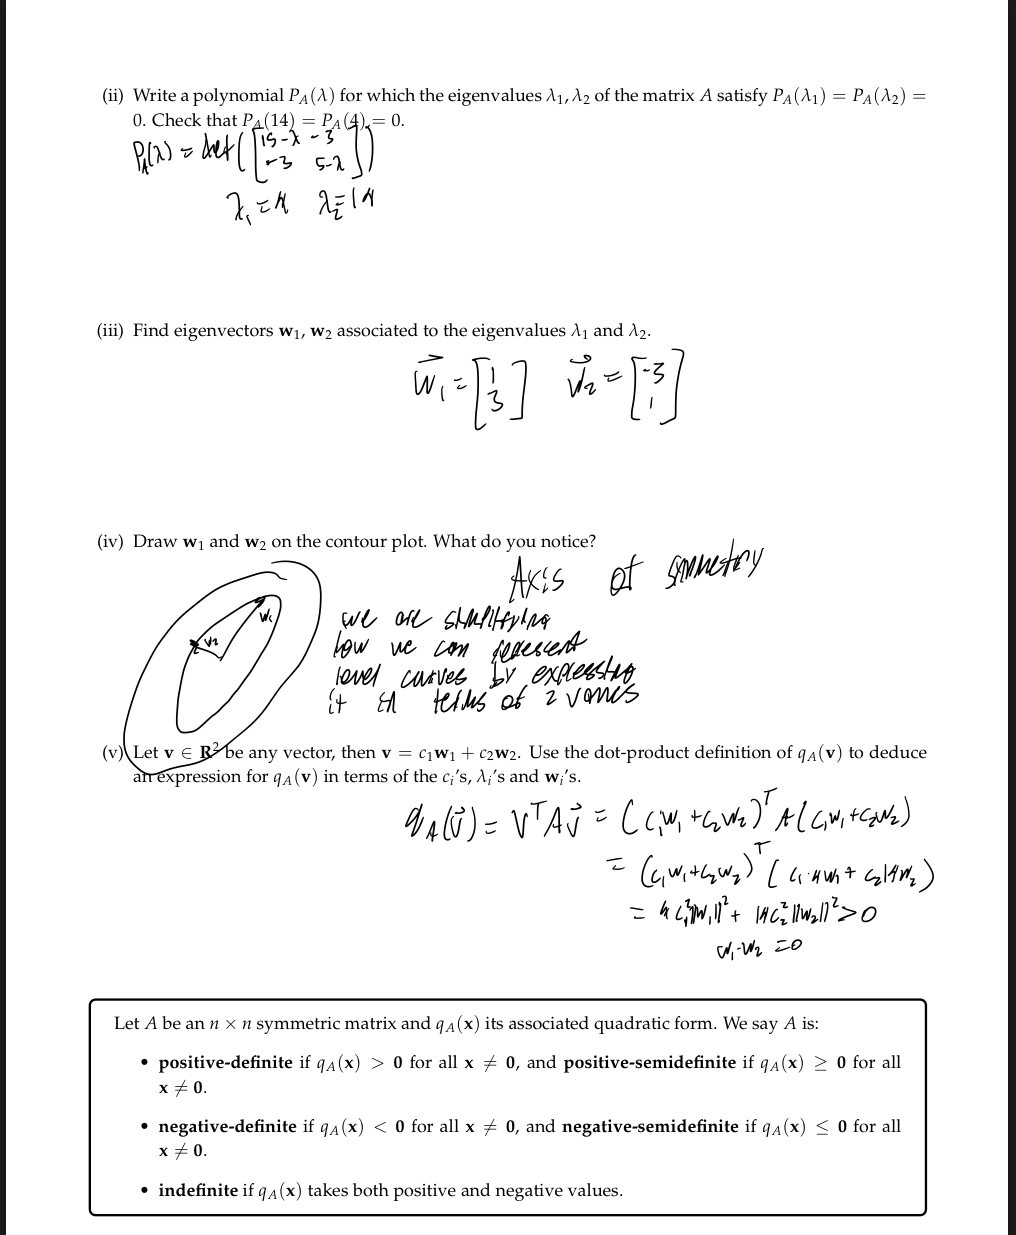 (ii) Write a polynomial P_A(λ) for which the eigenvalues λ₁, λ₂ of the matrix A satisfy P_A(λ₁) = P_A(λ₂) =
0. Check that P_A(14) = P_A(4) = 0.
P_A(λ) = det([15-λ -3
-3 5-λ])
λ₁ = 4 λ₂ = 14
(iii) Find eigenvectors w₁, w₂ associated to the eigenvalues λ₁ and λ₂.
w⃗₁ = [1 3] w⃗₂ = [-3 1]
(iv) Draw w₁ and w₂ on the contour plot. What do you notice?
Axis of symmetry
w₁
we are simplifying
v₂
how we can represent
level curves by expressing
it in terms of 2 values
(v) Let v ∈ R² be any vector, then v = c₁w₁ + c₂w₂. Use the dot-product definition of q_A(v) to deduce
an expression for q_A(v) in terms of the cᵢ's, λᵢ's and wᵢ's.
q_A(v⃗) = VᵀAv⃗ = (c₁w₁ + c₂w₂)ᵀ A(c₁w₁ + c₂w₂)
= (c₁w₁ + c₂w₂)ᵀ (c₁·4w₁ + c₂14w₂)
= 4c₁²||w₁||² + 14c₂²||w₂||² > 0
w₁·w₂ = 0
Let A be an n × n symmetric matrix and q_A(x) its associated quadratic form. We say A is:
• positive-definite if q_A(x) > 0 for all x ≠ 0, and positive-semidefinite if q_A(x) ≥ 0 for all
x ≠ 0.
• negative-definite if q_A(x) < 0 for all x ≠ 0, and negative-semidefinite if q_A(x) ≤ 0 for all
x ≠ 0.
• indefinite if q_A(x) takes both positive and negative values.